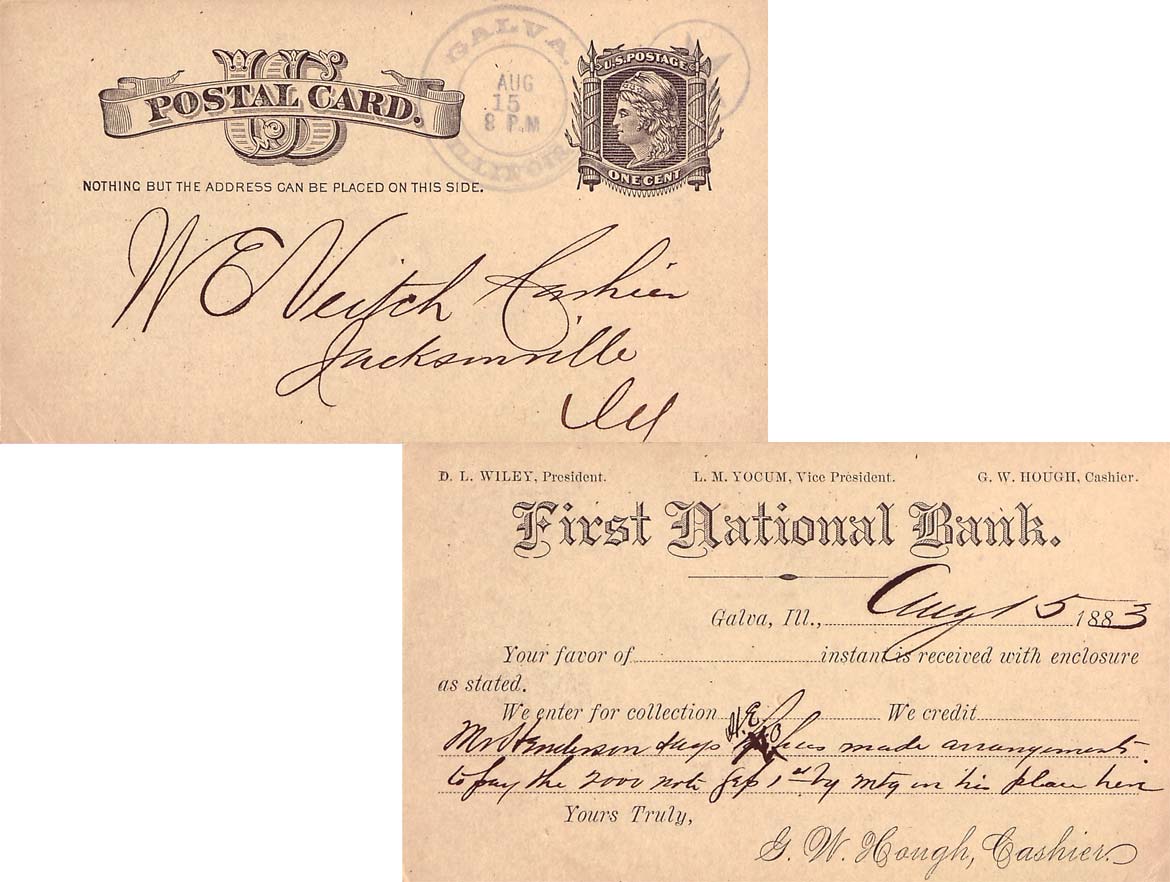 US
POSTAL CARD.
GALVA.
AUG
15
8 P.M
ILLINOIS
U.S. POSTAGE
ONE CENT
NOTHING BUT THE ADDRESS CAN BE PLACED ON THIS SIDE.
W E Veitch Cashier
Jacksonville
Ill
D. L. WILEY, President. L. M. YOCUM, Vice President. G. W. HOUGH, Cashier.
First National Bank.
Galva, Ill., Aug 15 1883
Your favor of instant is received with enclosure
as stated.
We enter for collection We credit
Mr Henderson says has made arrangements
to pay the 2000 note Sep 1st by mtg on his place here
Yours Truly,
G. W. Hough, Cashier.